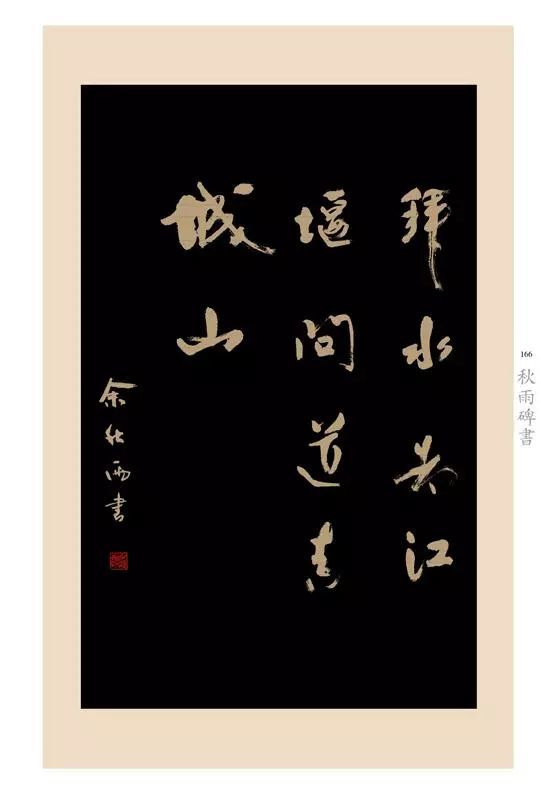 拜水都江
堰問道青
城山
余秋雨書
166
秋雨碑書